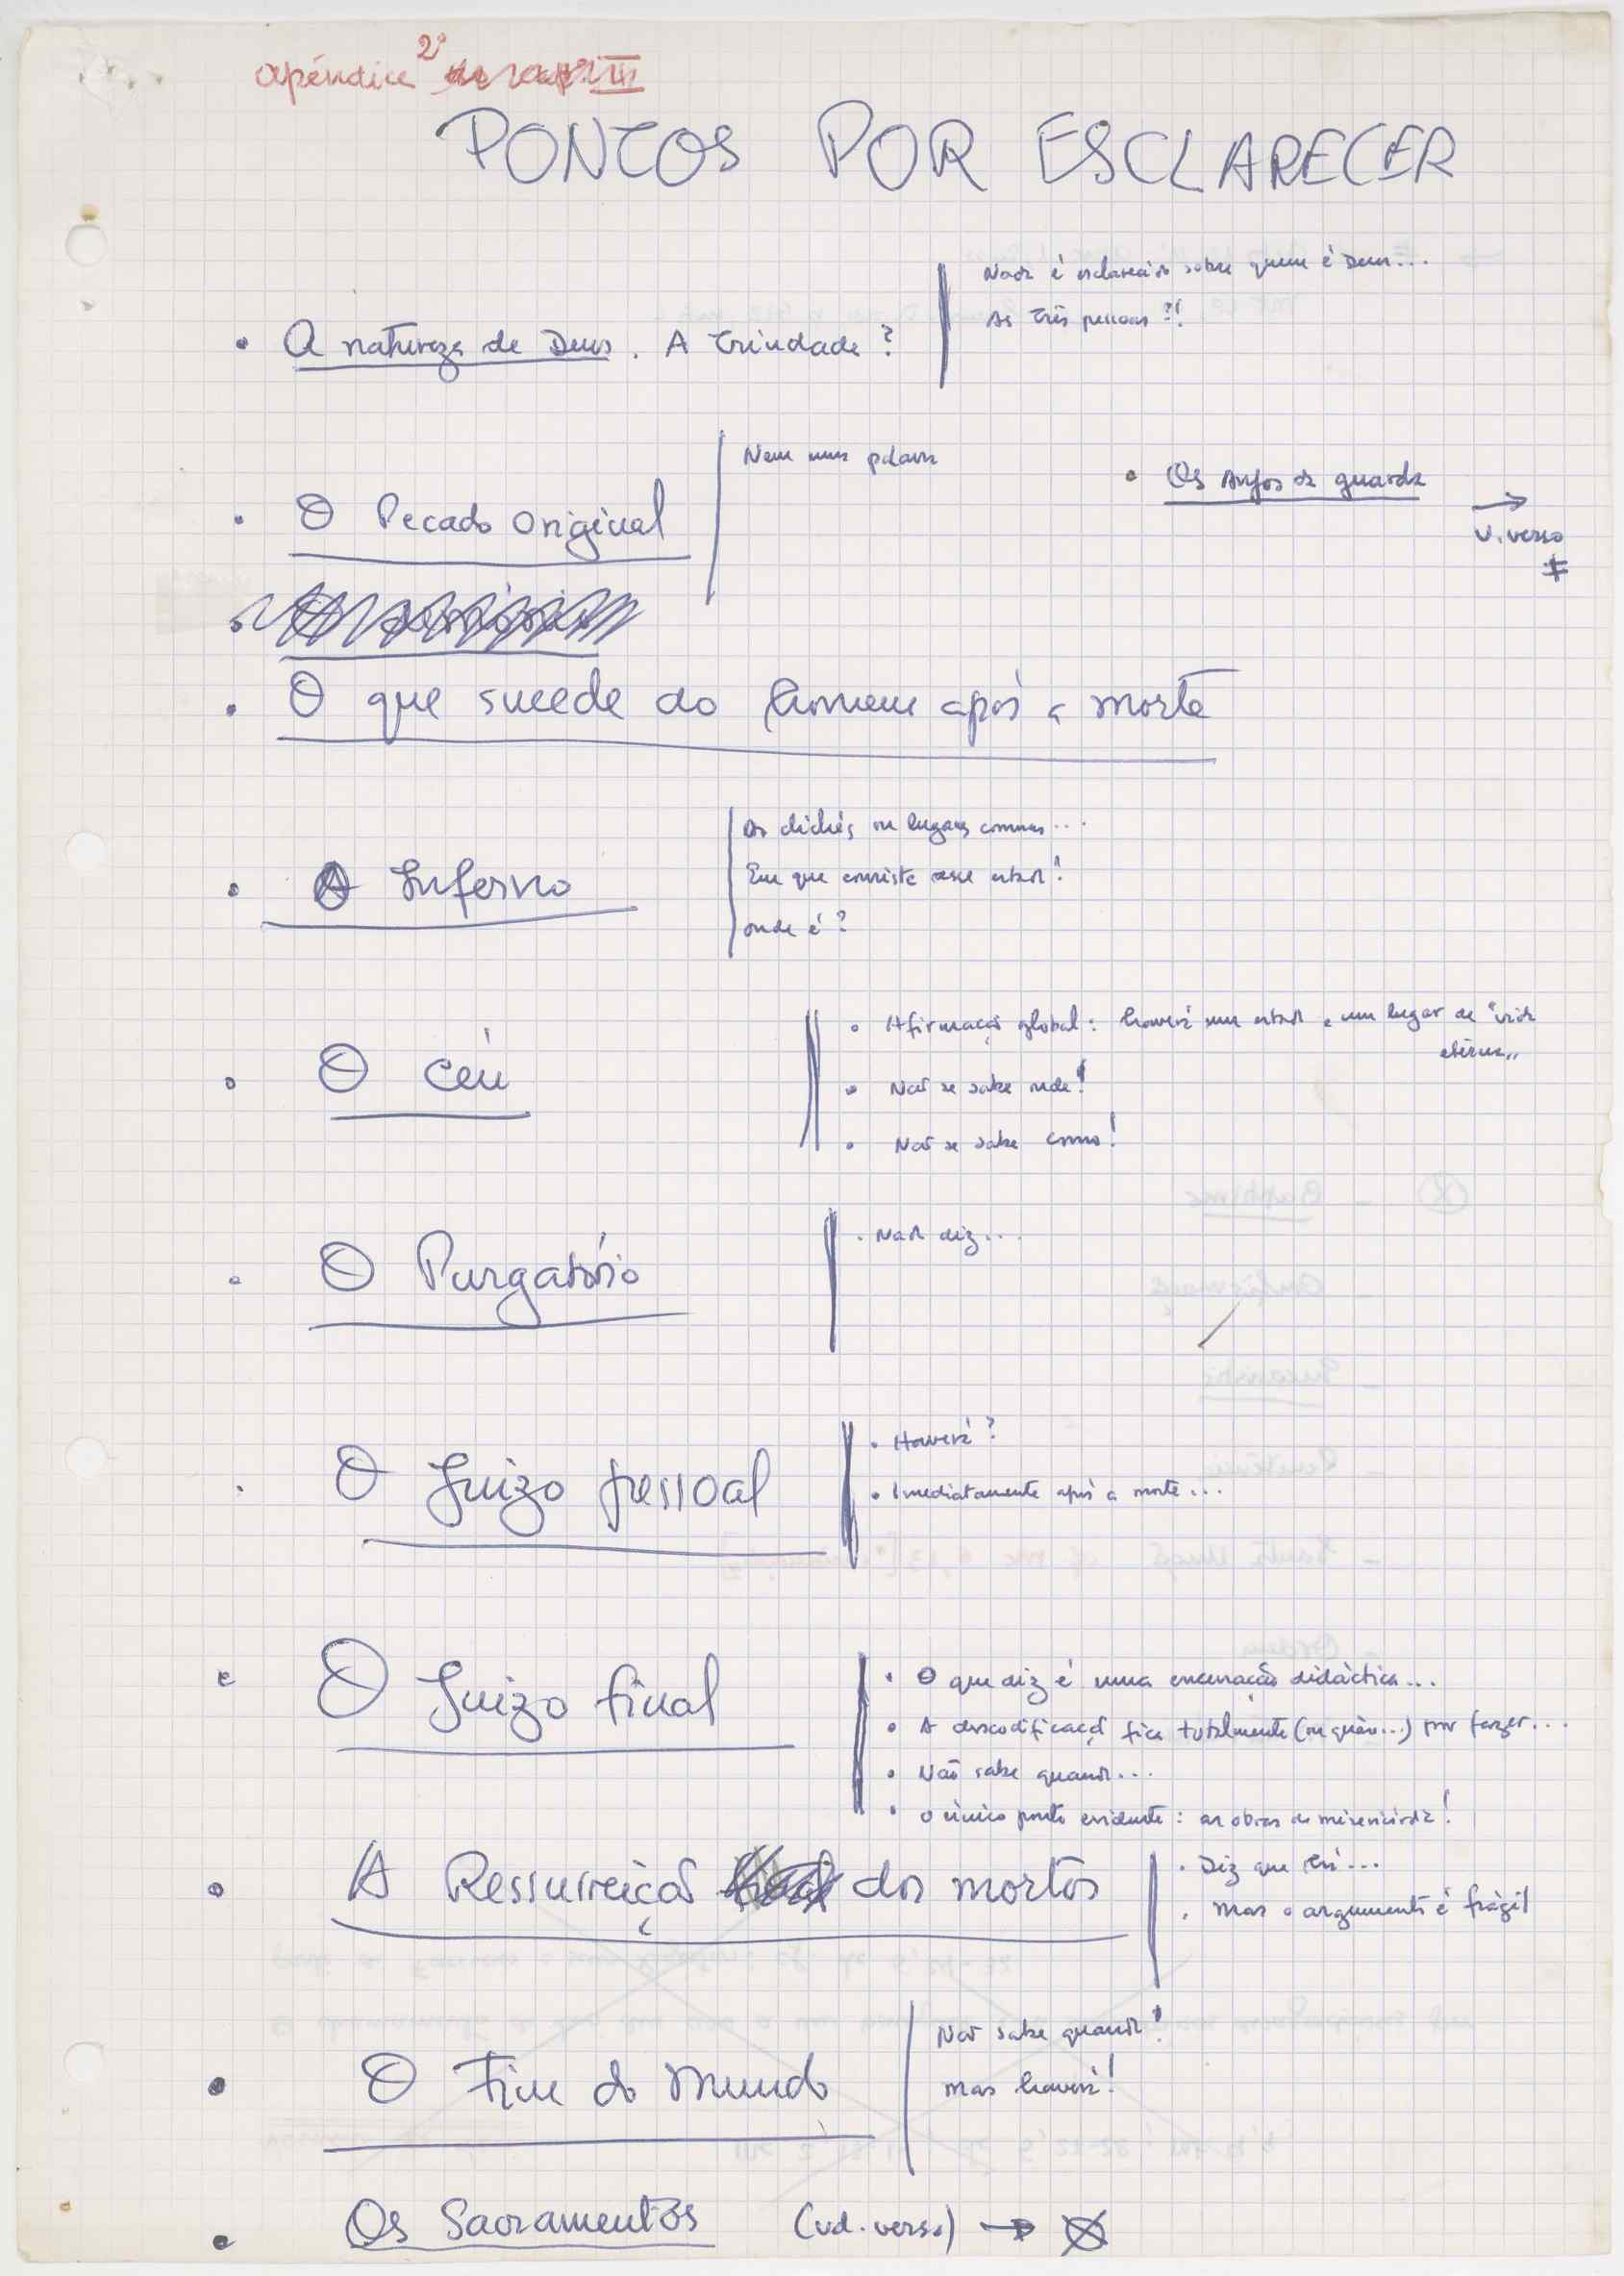 apéndice 2º
III
PONTOS POR ESCLARECER
• A natureza de Deus. A Trindade?
Nada é esclarecido sobre quem é Deus...
As três pessoas?!
• O Pecado original
Nem uma palavra
• Os anjos da guarda
→
v. verso
• O que sucede ao homem após a morte
• O Inferno
Os clichés ou lugares comuns...
Em que consiste esse estado!
onde é?
• O Céu
• Afirmação global: haverá um estado e um lugar de "vida
eterna"
• Não se sabe onde!
• Não se sabe como!
• O Purgatório
• Nada diz...
• O Juizo pessoal
• Haverá?
• Imediatamente após a morte...
• O Juizo final
• O que diz é uma encenação didáctica...
• A descodificação fica totalmente (ou quase...) por fazer...
• Não sabe quando...
• O único ponto evidente: as obras de misericórdia!
• A Ressurreição dos mortos
• Diz que há...
• Mas o argumento é frágil
• O Fim do Mundo
Não sabe quando!
mas haverá!
• Os Sacramentos (vd. verso) →